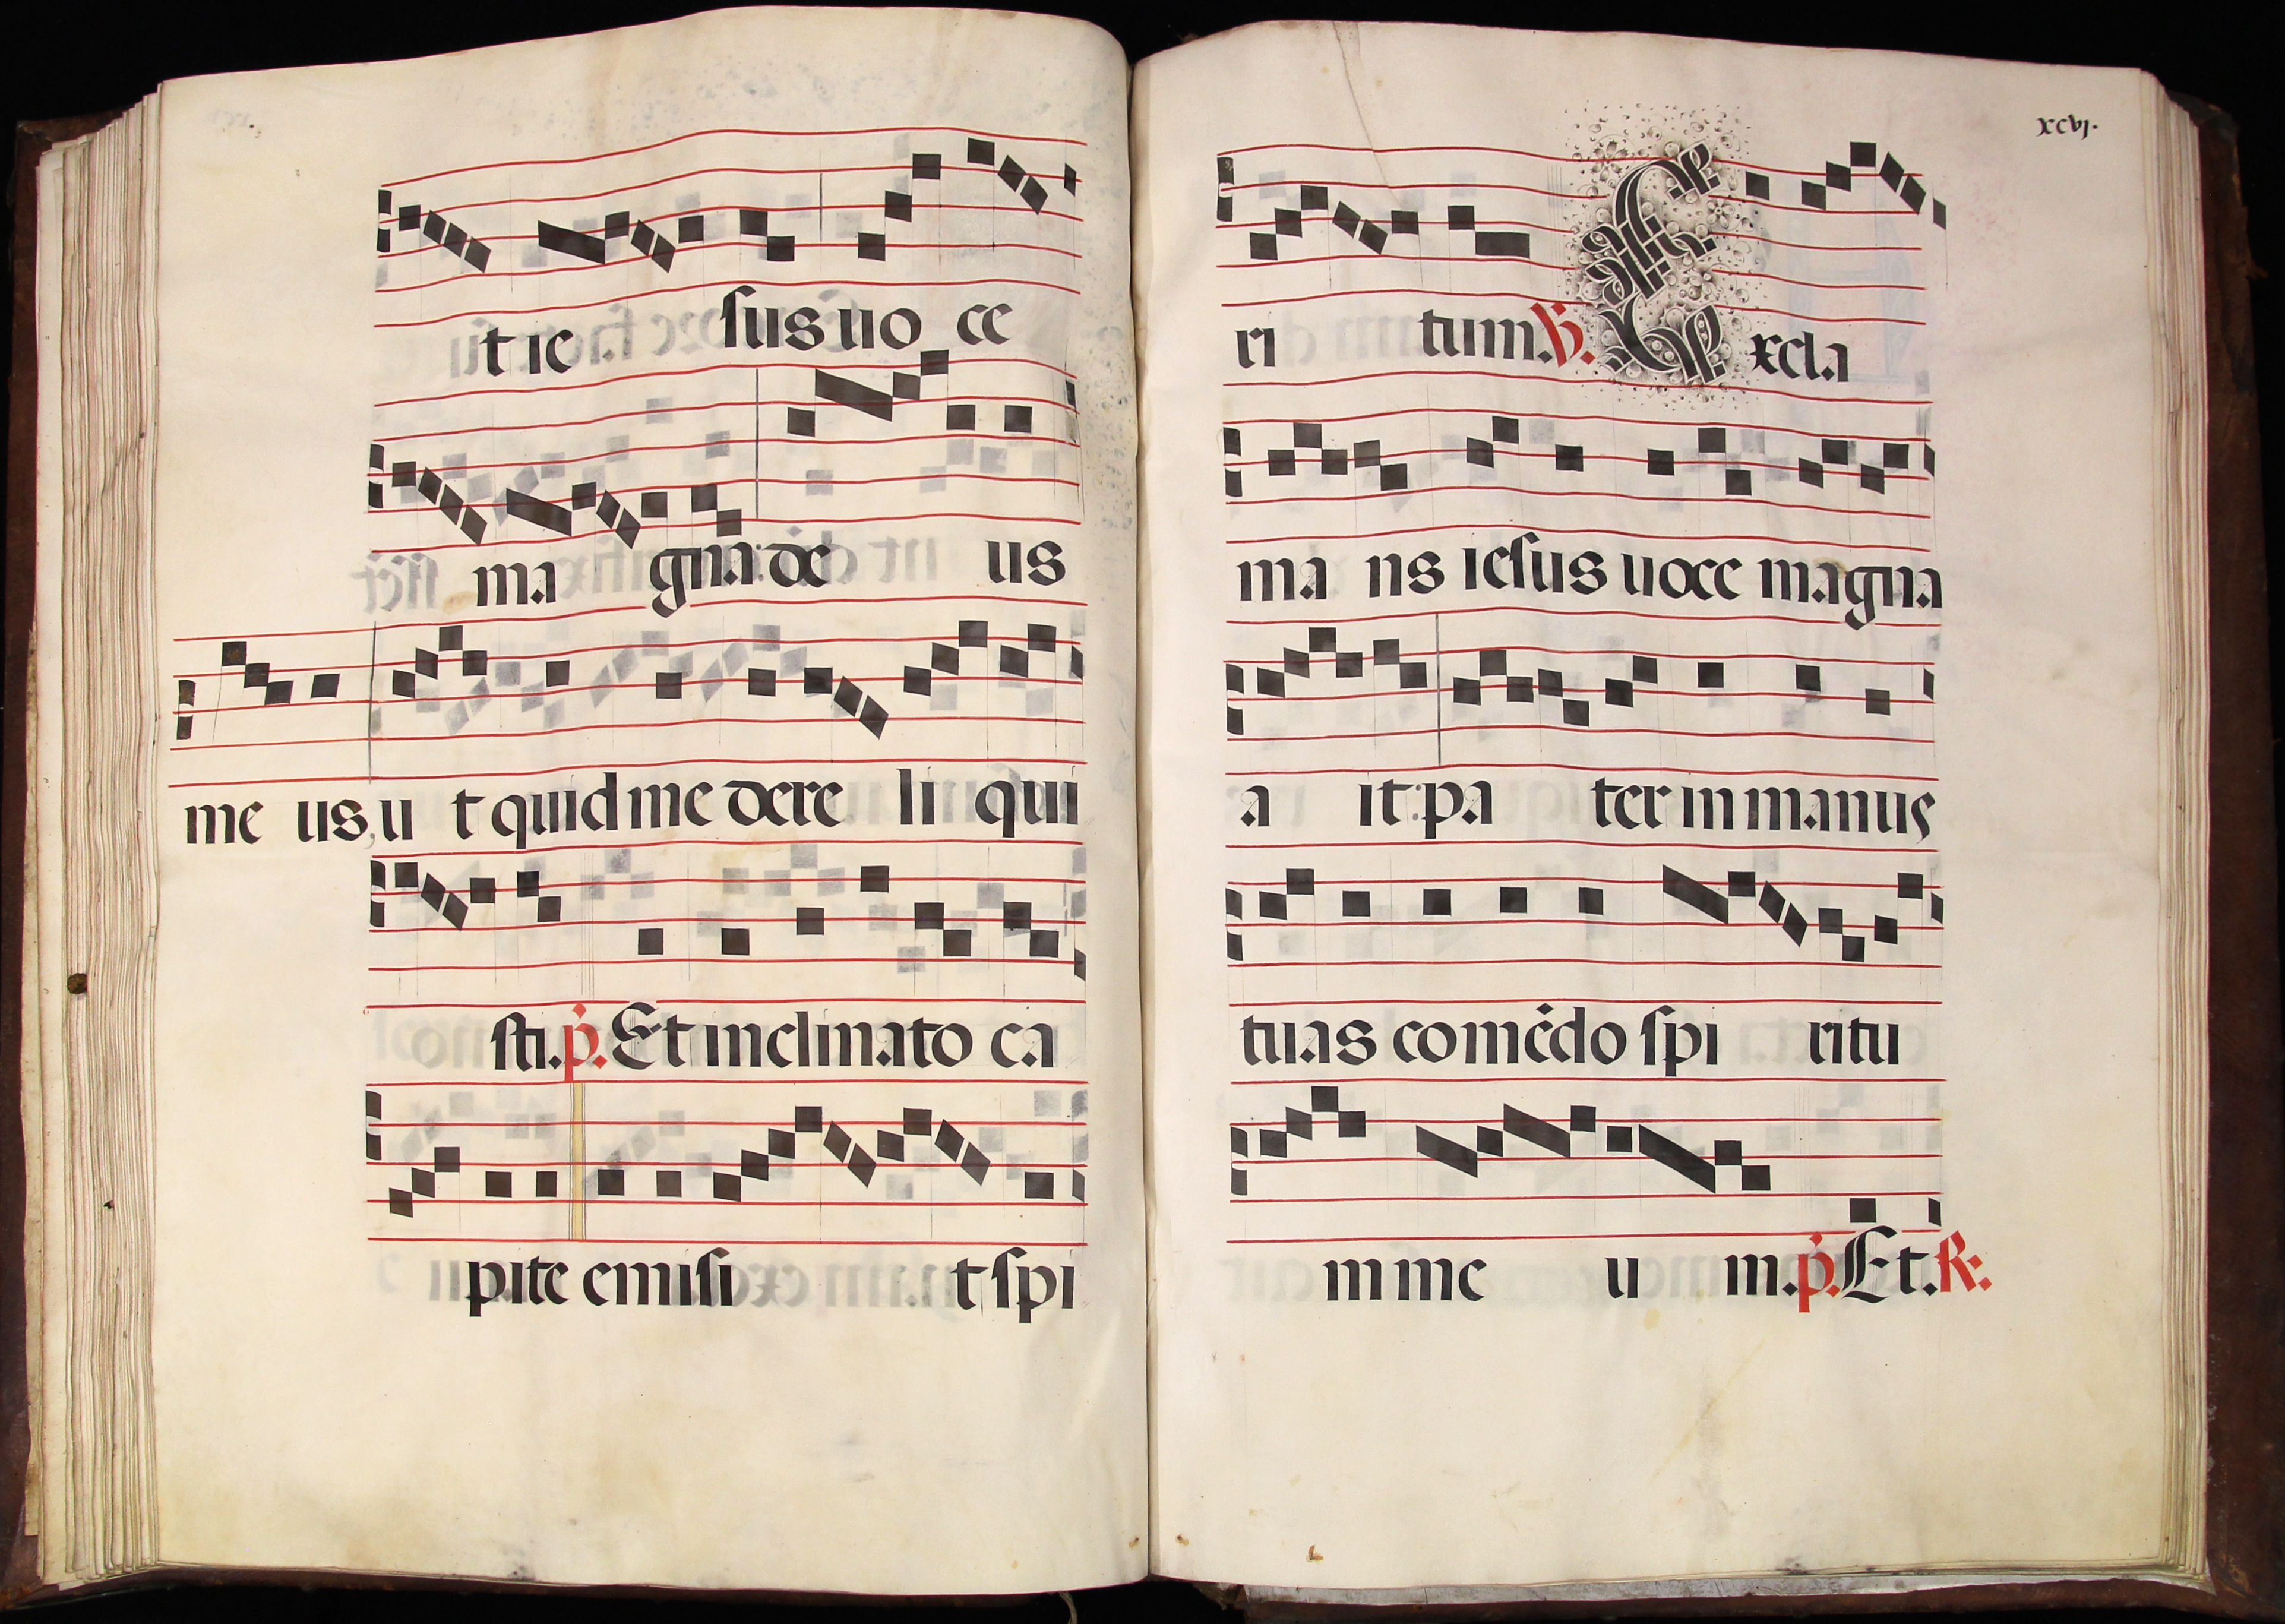 t ie sus uo ce
ma gna: de us
me us, u t quid me dere li qui
sti. p. Et inclinato ca
pite emisi t spi
xcvj.
ri tum. V. E xcla
ma ns iesus uoce magna
a it: pa ter in manus
tuas comēdo spi ritu
m me u m. p. Et. R.